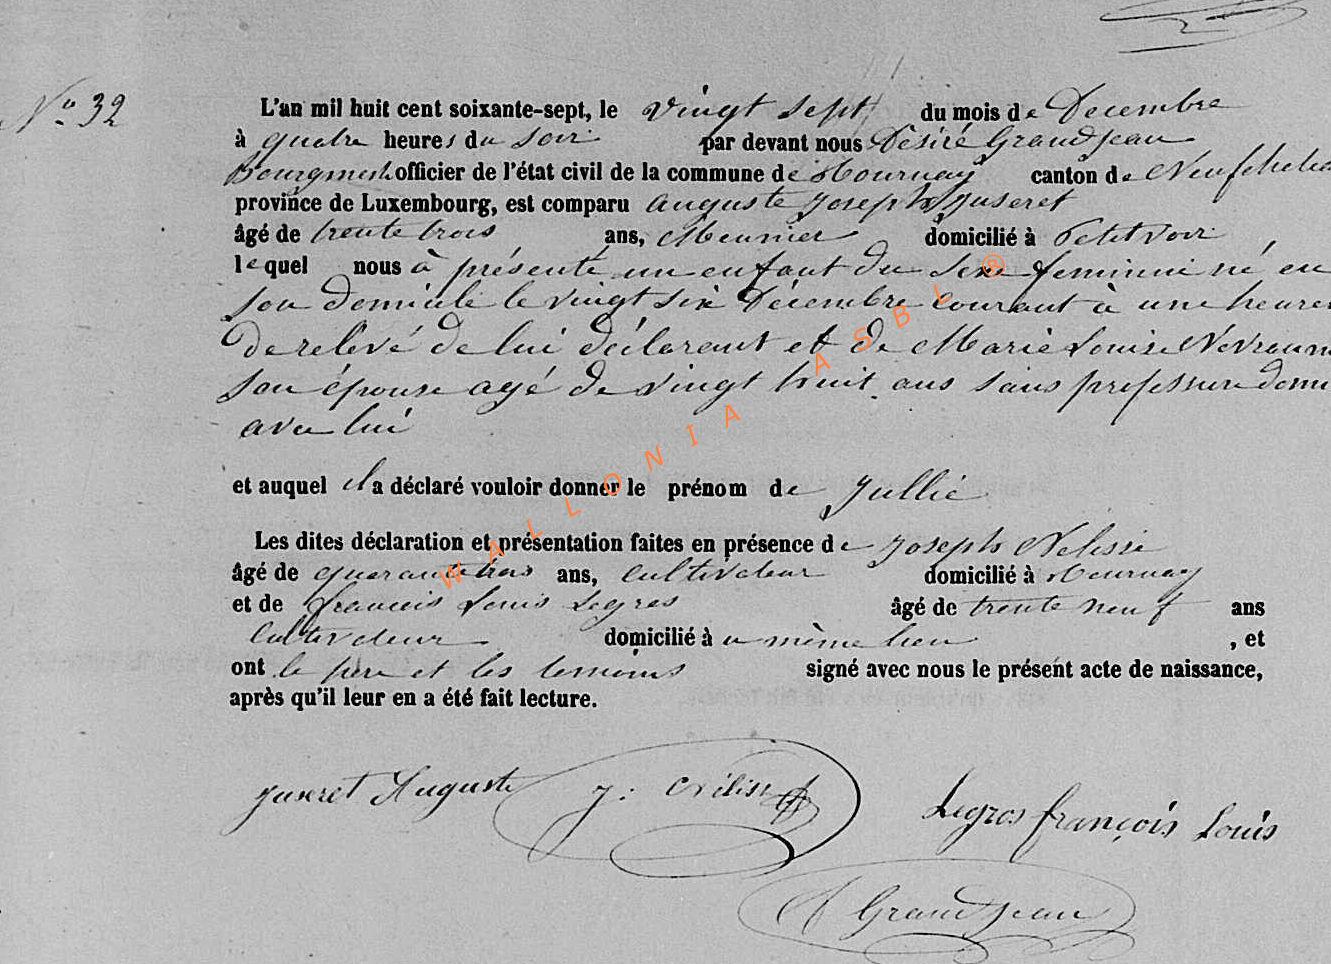 No 32
L'an mil huit cent soixante-sept, le vingt sept du mois de Decembre
à quatre heures du soir par devant nous Désiré Grandjean
Bourgmest. officier de l'état civil de la commune de Tournay canton de Neufchateau
province de Luxembourg, est comparu Auguste Joseph Juseret
âgé de trente trois ans, Meunier domicilié à Petitvoir
lequel nous à présenté un enfant du sexe feminin né en
son domicile le vingt six Décembre courant à une heure
de relevé de lui déclarant et de Marie Louise
son épouse agé de vingt huit ans sans profession domi
avec lui
et auquel il a déclaré vouloir donner le prénom de Jullie
Les dites déclaration et présentation faites en présence de Joseph Nelisse
âgé de quarante trois ans, cultivateur domicilié à Tournay
et de francois Louis Legros âgé de trente neuf ans
cultivateur domicilié à u même lieu , et
ont le père et les temoins signé avec nous le présent acte de naissance,
après qu'il leur en a été fait lecture.
Juseret Auguste J: Nélisse Legros françois Louis
Grandjean
WALLONIA ASBL ®